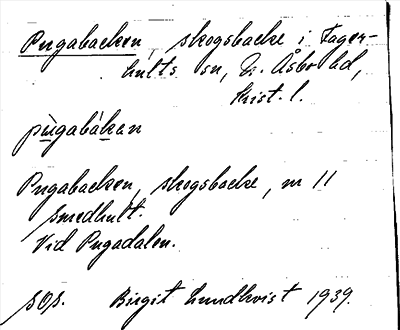 Pugabacken, skogsbacke i Fager-
hults sn, N. Åsbo hd,
Krist. l.
pùgabákan
Pugabacken, skogsbacke, m 11
Smedhult.
Vid Pugadalen.
Birgit Lundkvist 1939.